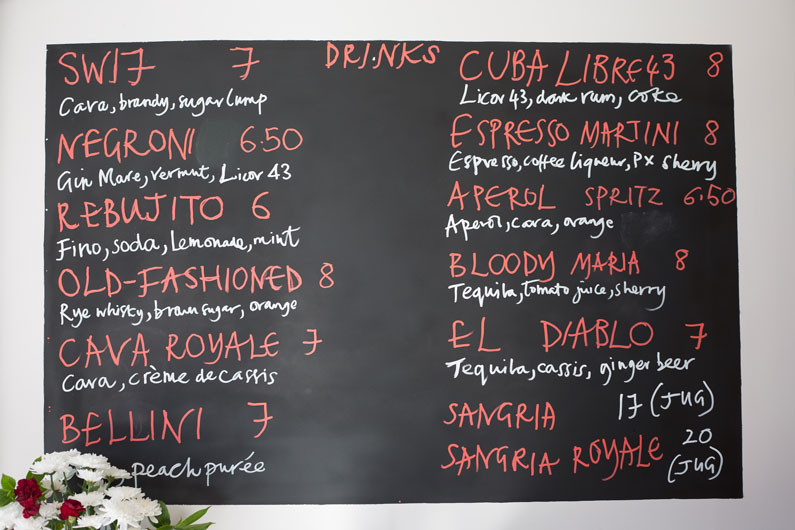 DRINKS
SWIF 7
Cava, brandy, sugar lump
NEGRONI 6.50
Gin Mare, vermut, Licor 43
REBUJITO 6
Fino, soda, Lemonade, mint
OLD-FASHIONED 8
Rye whisky, brown sugar, orange
CAVA ROYALE 7
Cava, crème de cassis
BELLINI 7
, peach purée
CUBA LIBRE 43 8
Licor 43, dark rum, coke
ESPRESSO MARTINI 8
Espresso, coffee liqueur, Px sherry
APEROL SPRITZ 6.50
Aperol, cava, orange
BLOODY MARIA 8
Tequila, tomato juice, sherry
EL DIABLO 7
Tequila, cassis, ginger beer
SANGRIA 17 (JUG)
SANGRIA ROYALE 20 (JUG)